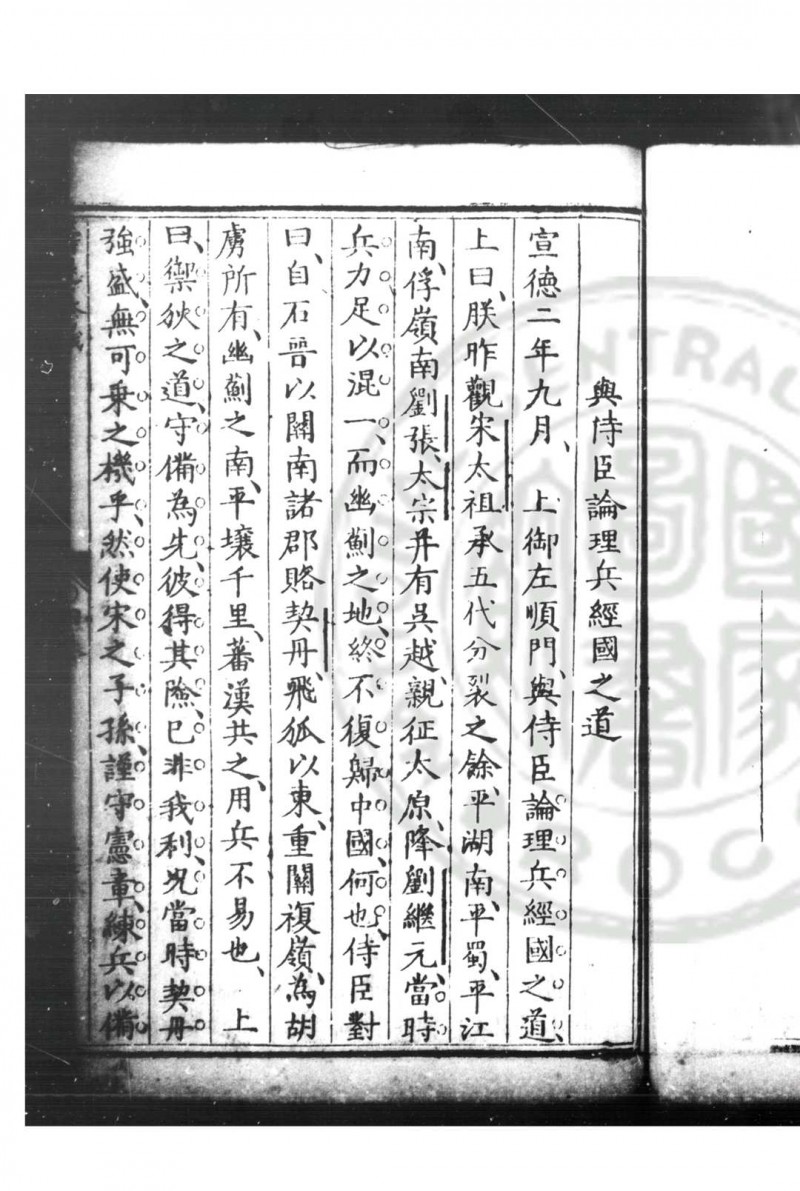 與侍臣論理兵經國之道
宣德二年九月、　上御左順門、與侍臣論理兵經國之道、
上曰、朕昨觀宋太祖承五代分裂之餘、平湖南、平蜀、平江
南、俘嶺南劉張、太宗并有吳越、親征太原、降劉繼元、當時
兵力足以混一、而幽薊之地、終不復歸中國、何也、侍臣對
曰、自石晉以關南諸郡賂契丹、飛狐以東、重關複嶺、為胡
虜所有、幽薊之南、平壤千里、蕃漢共之、用兵不易也、　上
曰、禦狄之道、守備為先、彼得其險、已非我利、況當時契丹
強盛、無可乗之機乎、然使宋之子孫、謹守憲章、練兵以備
CENTRAL